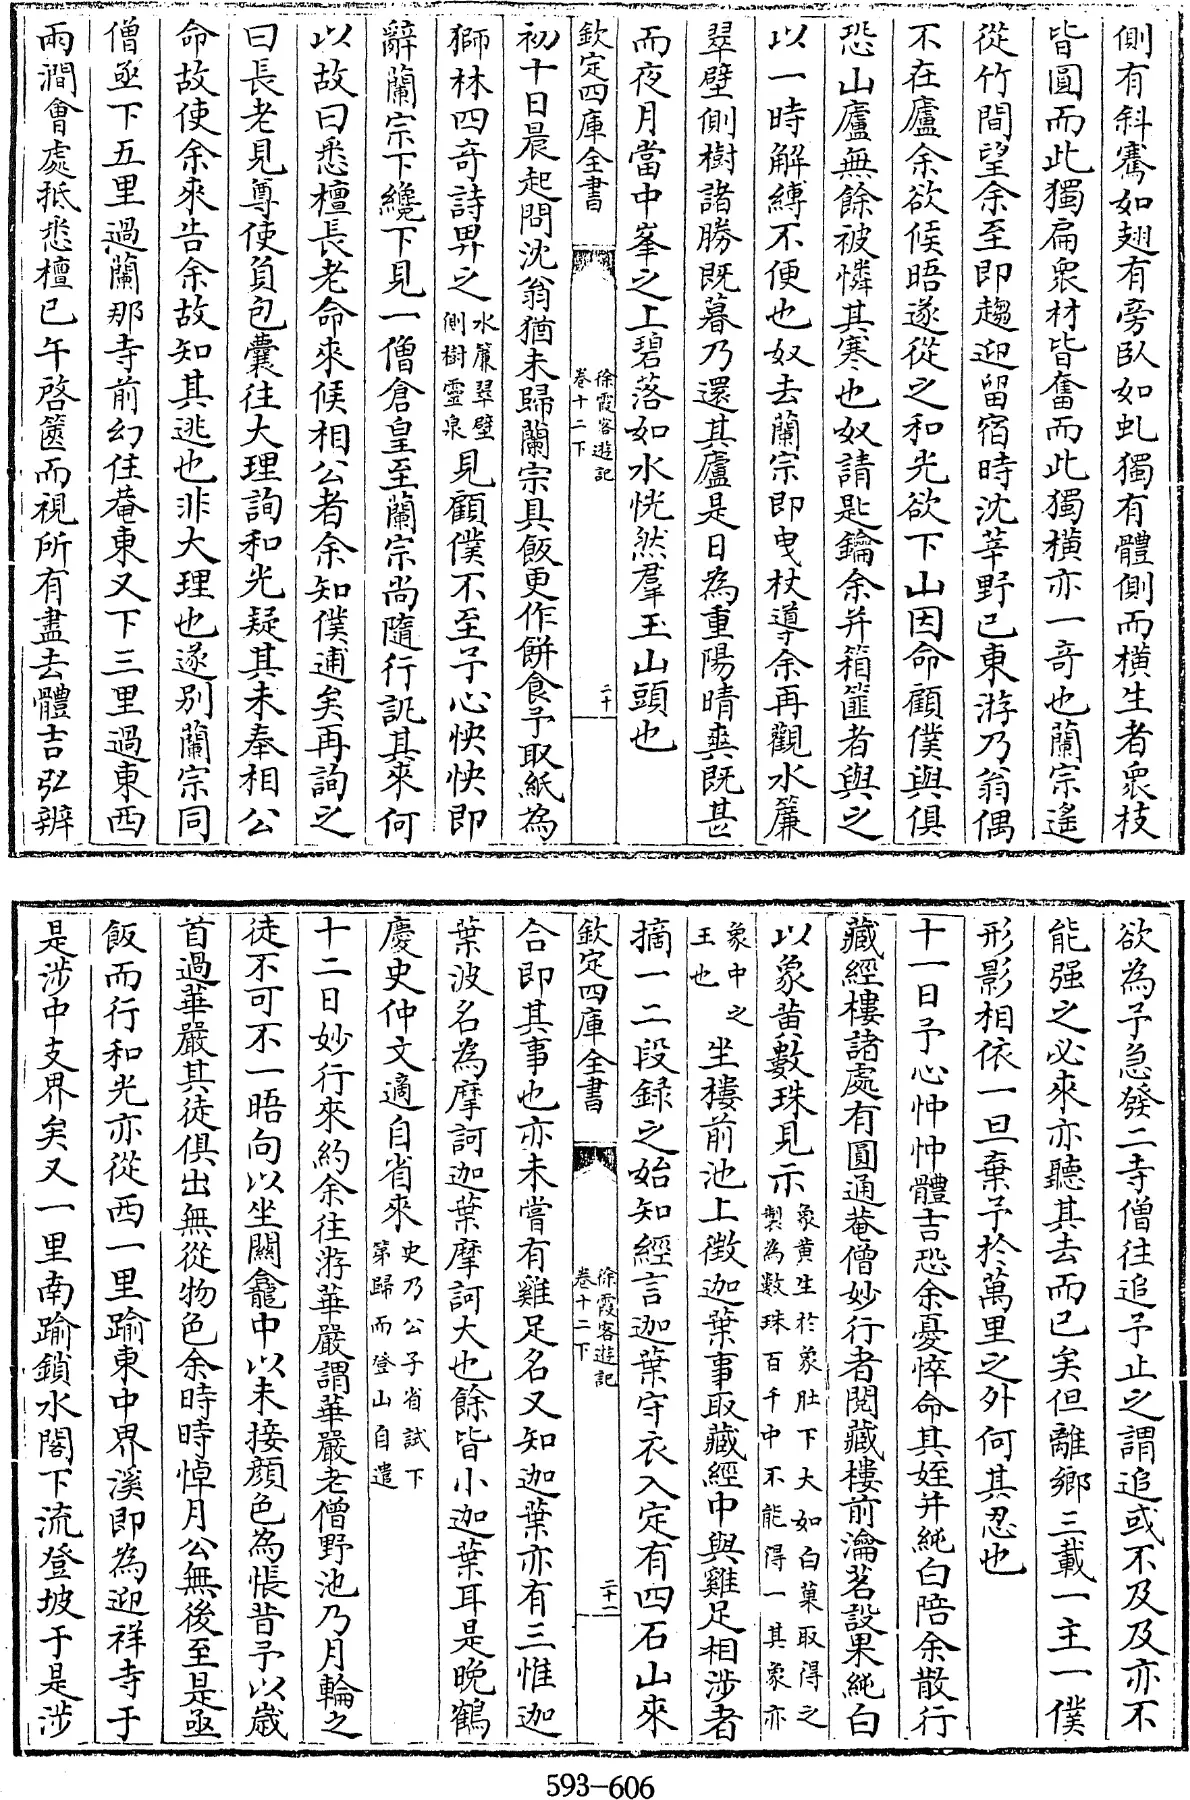 側有斜騫如翅有旁臥如虬獨有體側而橫生者衆枝
皆圓而此獨扁衆材皆奮而此獨橫亦一奇也蘭宗遙
從竹間望余至即趨迎留宿時沈莘野已東游乃翁偶
不在廬余欲候晤遂從之和光欲下山因命顧僕與俱
恐山廬無餘被憐其寒也奴請匙鑰余并箱篚者與之
以一時解縛不便也奴去蘭宗即曳杖導余再觀水簾
翠壁側樹諸勝既暮乃還其廬是日為重陽晴爽既甚
而夜月當中峯之上碧落如水恍然羣玉山頭也
欽定四庫全書
徐霞客遊記
卷十二下
二十
初十日晨起問沈翁猶未歸蘭宗具飯更作餅食予取紙為
獅林四奇詩畀之水簾翠壁側樹靈泉見顧僕不至予心怏怏即
辭蘭宗下纔下見一僧倉皇至蘭宗尚隨行訊其來何
以故曰悉檀長老命來候相公者余知僕逋矣再詢之
曰長老見尊使負包囊往大理詢和光疑其未奉相公
命故使余來告余故知其逃也非大理也遂別蘭宗同
僧亟下五里過蘭那寺前幻住菴東又下三里過東西
兩澗會處抵悉檀已午啓篋而視所有盡去體吉弘辨
欲為予急發二寺僧往追予止之謂追或不及及亦不
能强之必來亦聽其去而已矣但離鄉三載一主一僕
形影相依一旦棄予於萬里之外何其忍也
十一日予心忡忡體吉恐余憂悴命其姪并純白陪余散行
藏經樓諸處有圓通菴僧妙行者閱藏樓前瀹茗設果純白
以象黃數珠見示象黃生於象肚下大如白菓取得之製為數珠百千中不能得一其象亦
象中之王也坐樓前池上徴迦葉事取藏經中與雞足相涉者
摘一二段録之始知經言迦葉守衣入定有四石山來
欽定四庫全書
徐霞客遊記
卷十二下
二十一
合即其事也亦未嘗有雞足名又知迦葉亦有三惟迦
葉波名為摩訶迦葉摩訶大也餘皆小迦葉耳是晚鶴
慶史仲文適自省來史乃公子省試下第歸而登山自遣
十二日妙行來約余往游華嚴謂華嚴老僧野池乃月輪之
徒不可不一晤向以坐關龕中以未接顔色為悵昔予以歲
首過華嚴其徒俱出無從物色余時時悼月公無後至是亟
飯而行和光亦從西一里踰東中界溪即為迎祥寺于
是涉中支界矣又一里南踰鎖水閣下流登坡于是涉
593–606